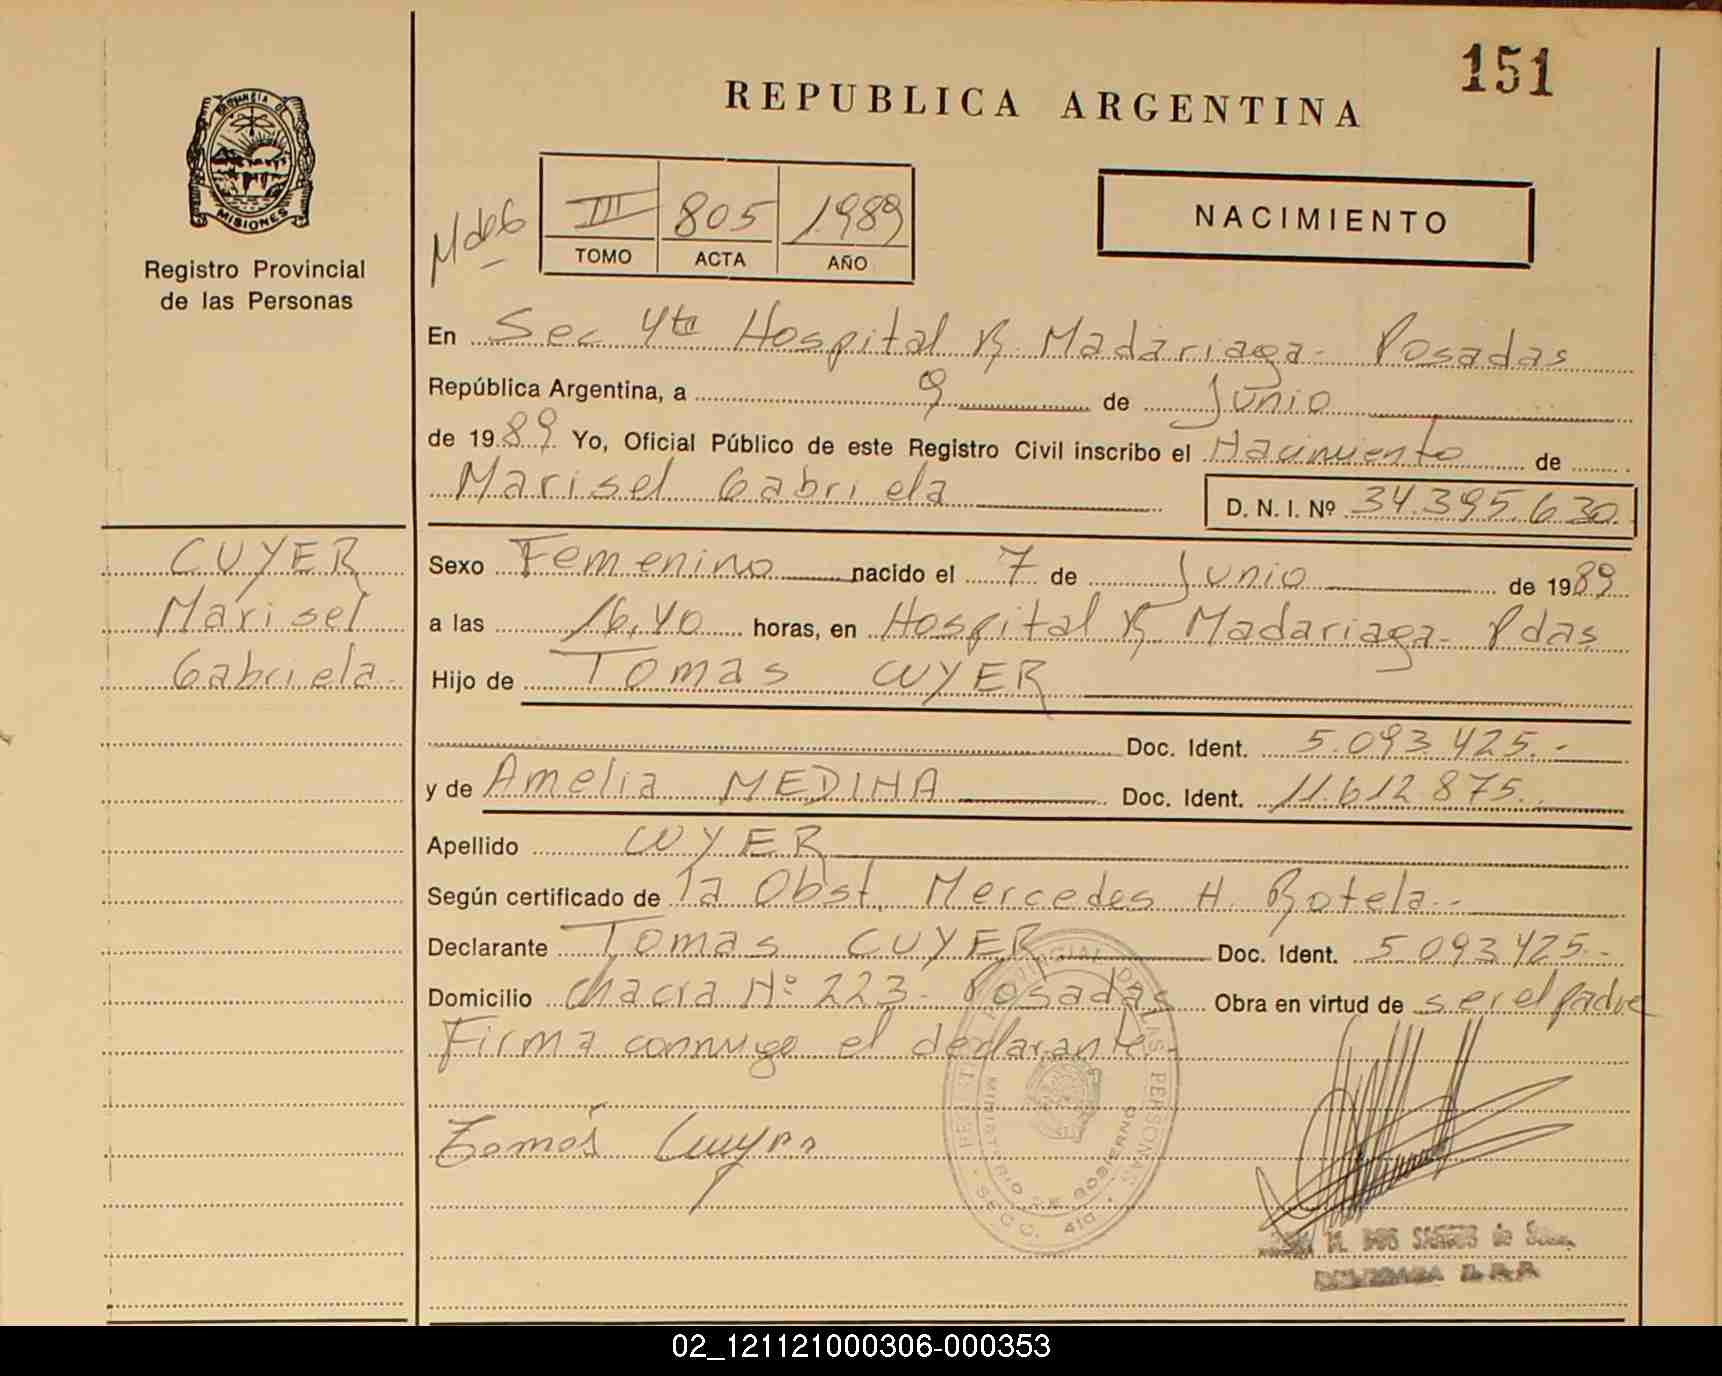 151
REPUBLICA ARGENTINA
PROVINCIA DE
MISIONES
Registro Provincial
de las Personas
III 805 1989
TOMO ACTA AÑO
NACIMIENTO
En Sec 4ta Hospital R. Madariaga - Posadas
República Argentina, a 9 de Junio
de 1989 Yo, Oficial Público de este Registro Civil inscribo el Nacimiento de
Marisel Gabriela
D. N. I. Nº 34.395.630.
CUYER
Marisel
Gabriela.
Sexo Femenino nacido el 7 de Junio de 1989
a las 16,40 horas, en Hospital R. Madariaga - Pdas
Hijo de Tomas CUYER
Doc. Ident. 5.093.425.-
y de Amelia MEDINA Doc. Ident. 11.612.875.
Apellido CUYER
Según certificado de la Obst. Mercedes H. Rotela.-
Declarante Tomas CUYER Doc. Ident. 5.093.425.-
Domicilio Chacra Nº 223 - Posadas Obra en virtud de ser el padre
Firma conmigo el declarante.-
Tomás Cuyer
MINISTERIO DE GOBIERNO
SECC. 4ta
DOS SANTOS de
DELEGADA
02_121121000306-000353